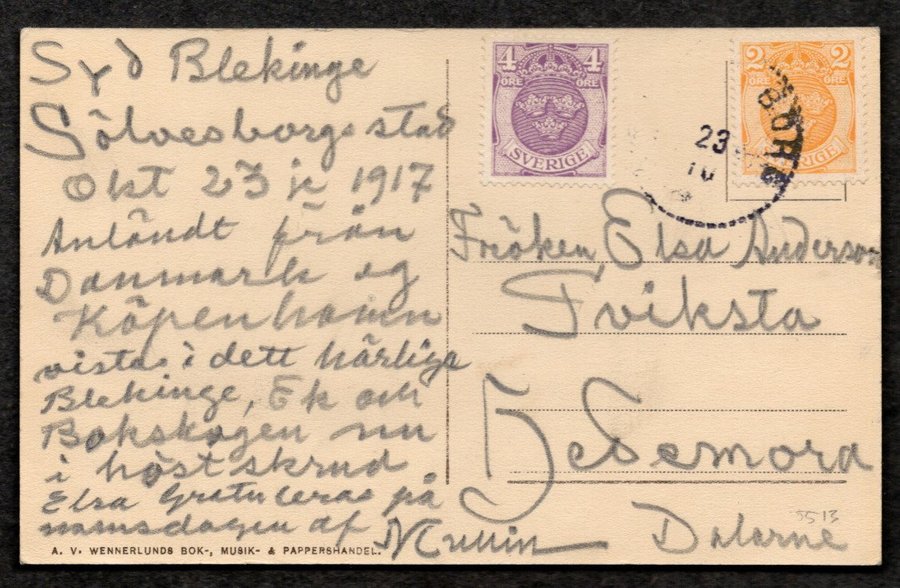 Syd Blekinge
Sölvesborgs stad
Okt 23 1917
Anländt från
Danmark og
Köpenhamn
vista i dett härliga
Blekinge, Ek och
Bokskogen nu
i höstskrud
Elsa Gratuleras på
namnsdagen af
A. V. WENNERLUNDS BOK-, MUSIK- & PAPPERSHANDEL.
4 4
ÖRE ÖRE
SVERIGE
2 2
ÖRE ÖRE
SVERIGE
23
10
Fröken Elsa Anderson
Tviksta
Hedemora
Dalarne
5513